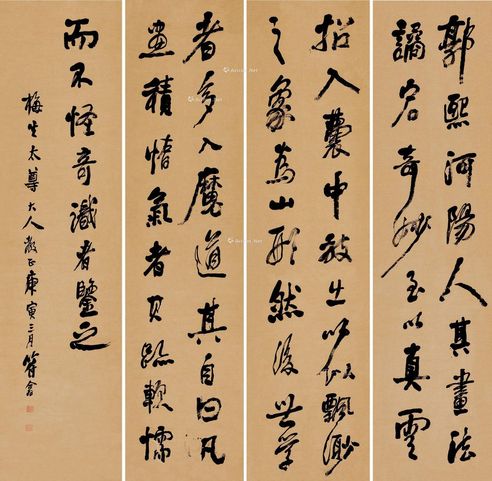 郭熙河陽人其畫法
譎宕奇妙至以真雲
招入囊中放出以似飄渺
之象為山形然後世學
者多入魔道其自曰凡
畫積惰氣者其跡軟懦
而不怪奇識者鑒之
梅生太尊大人教正庚寅三月符翕